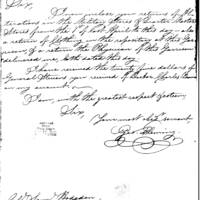 Sir,
I now enclose you returns of the
alterations in the Military Stores & Quarter Masters
Stores from the 1st of last April to this day also a
return of Clothing in the repository at this Gar
rison, & a return the Physician of the Garrison
delivered me, both dated this day
I have received the twenty five dollars &
General Stevens you received of Doctor Charles
on my account.
I am, with the greatest respect & esteem
Sir,
Your most obdt servant,
Geo Fleming
Hodgdon